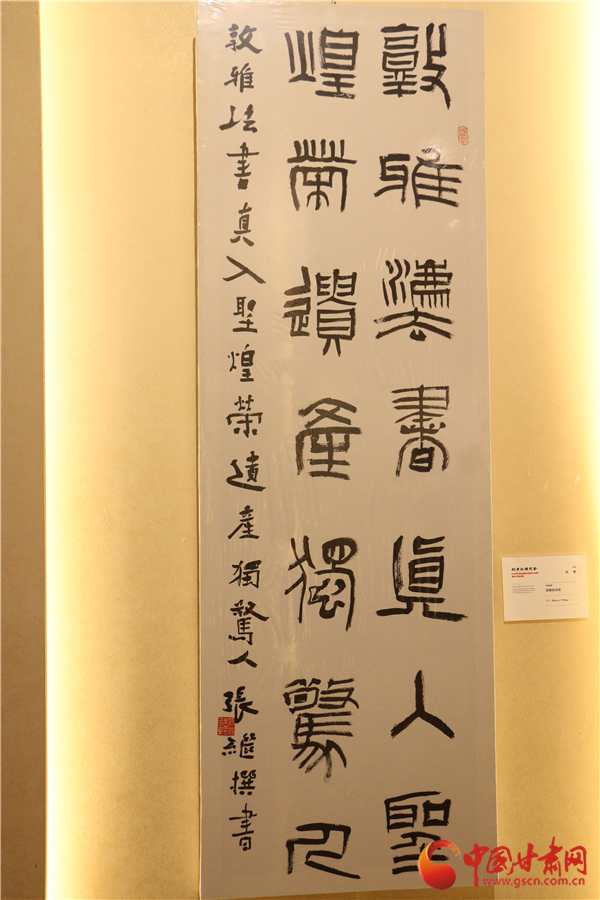 敦雅灋書真入聖
煌榮遺產獨驚人
敦雅法書真入聖煌榮遺產獨驚人張繼撰書
中国甘肃网
www.gscn.com.cn